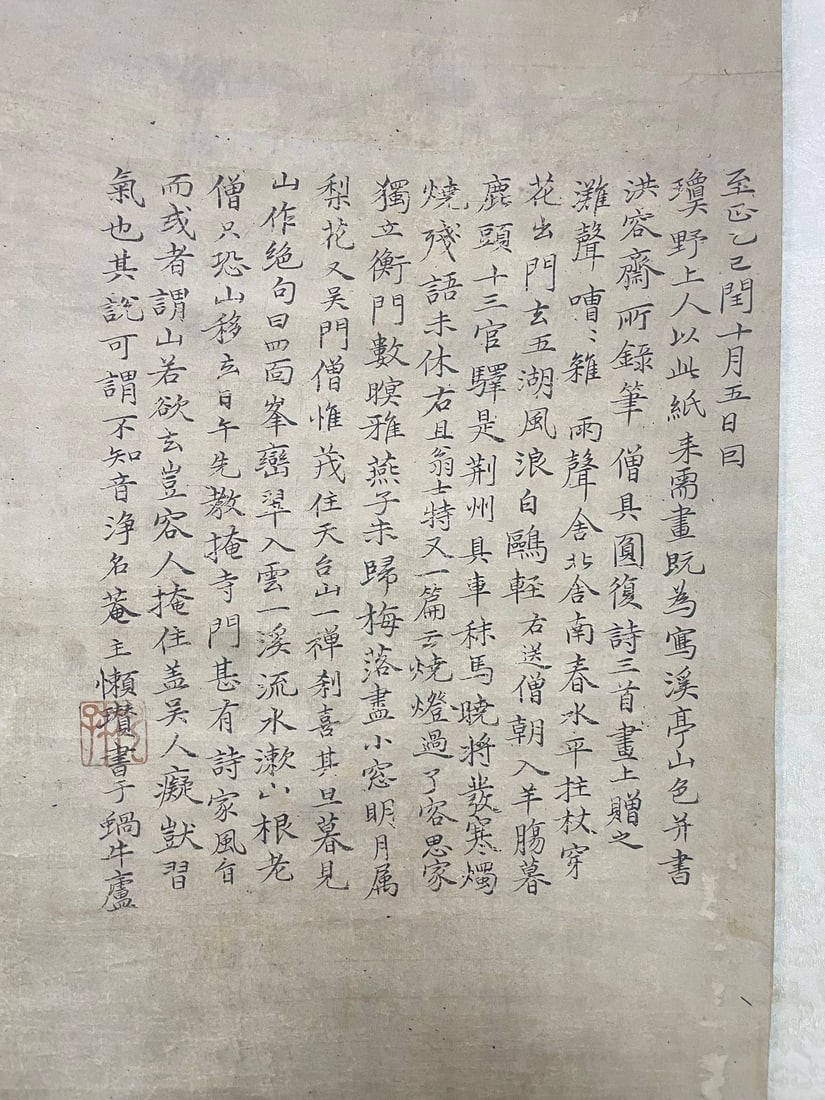 至正乙巳閏十月五日曰
瓊野上人以此紙来需畫既為寫溪亭山色并書
洪容齋所錄筆僧具圓復詩三首畫上贈之
灘聲嘈〻雜雨聲舍北舍南春水平拄杖穿
花出門去五湖風浪白鷗輕右送僧朝入羊腸暮
鹿頭十三官驛是荆州具車秣馬曉将發寒燭
燒殘語未休右且翁士特又一篇云燒燈過了容思家
獨立衡門數暝雅燕子未歸梅落盡小窓明月属
梨花又吴門僧惟茂住天台山一禅刹喜其旦暮見
山作絕句曰四面峯巒翠入雲一溪流水漱山根老
僧只恐山移去日午先教掩寺門甚有詩家風旨
而或者謂山若欲去豈容人掩住盖吴人癡獃習
氣也其說可謂不知音淨名菴主懶瓚書于蝸牛廬